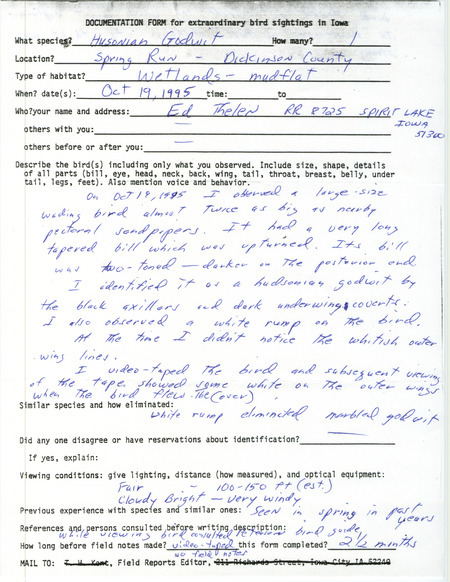 DOCUMENTATION FORM for extraordinary bird sightings in Iowa
What species? Husonian Godwit How many? 1
Location? Spring Run - Dickinson County
Type of habitat? Wetlands - mudflat
When? date(s): Oct 19, 1995 time: to
Who?your name and address: Ed Thelen RR 8725 SPIRIT LAKE
IOWA
51360
others with you: —
others before or after you: —
Describe the bird(s) including only what you observed. Include size, shape, details
of all parts (bill, eye, head, neck, back, wing, tail, throat, breast, belly, under
tail, legs, feet). Also mention voice and behavior.
On Oct 19, 1995 I observed a large-size
wading bird almost twice as big as nearby
pectoral sandpipers. It had a very long
tapered bill which was upturned. Its bill
was two-toned - darker on the posterior end.
I identified it as a hudsonian godwit by
the black axillars and dark underwing coverts.
I also observed a white rump on the bird.
At the time I didn't notice the whitish outer
wing lines.
I video-taped the bird and subsequent viewing
of the tape showed some white on the outer wings
when the bird flew. (over)
Similar species and how eliminated:
white rump eliminated marbled godwit
Did any one disagree or have reservations about identification?
If yes, explain:
Viewing conditions: give lighting, distance (how measured), and optical equipment:
Fair - 100-150 ft (est.)
Cloudy Bright - very windy
Previous experience with species and similar ones: Seen in spring in past
years
References and persons consulted before writing description:
while viewing bird consulted Peterson bird guide
How long before field notes made? video-taped this form completed? 2 1/2 months
no field notes
MAIL TO: T. H. Kent, Field Reports Editor, 211 Richards Street, Iowa City IA 52240